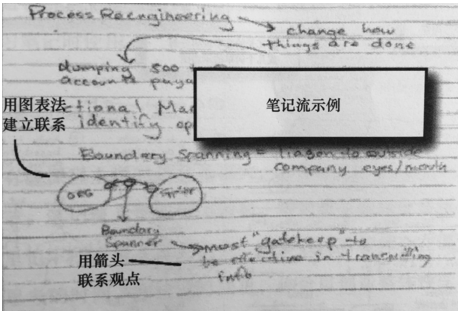 Process Reengineering
change how
things are done
dumping 500
accounts paya
用图表法
建立联系
笔记流示例
ctional Ma
identify op
Boundary Spanning = liason to outside
company eyes/mouth
ORG
Boundary
Spanner
must "gatekeep" to
be effective in transmitting
info
用箭头
联系观点